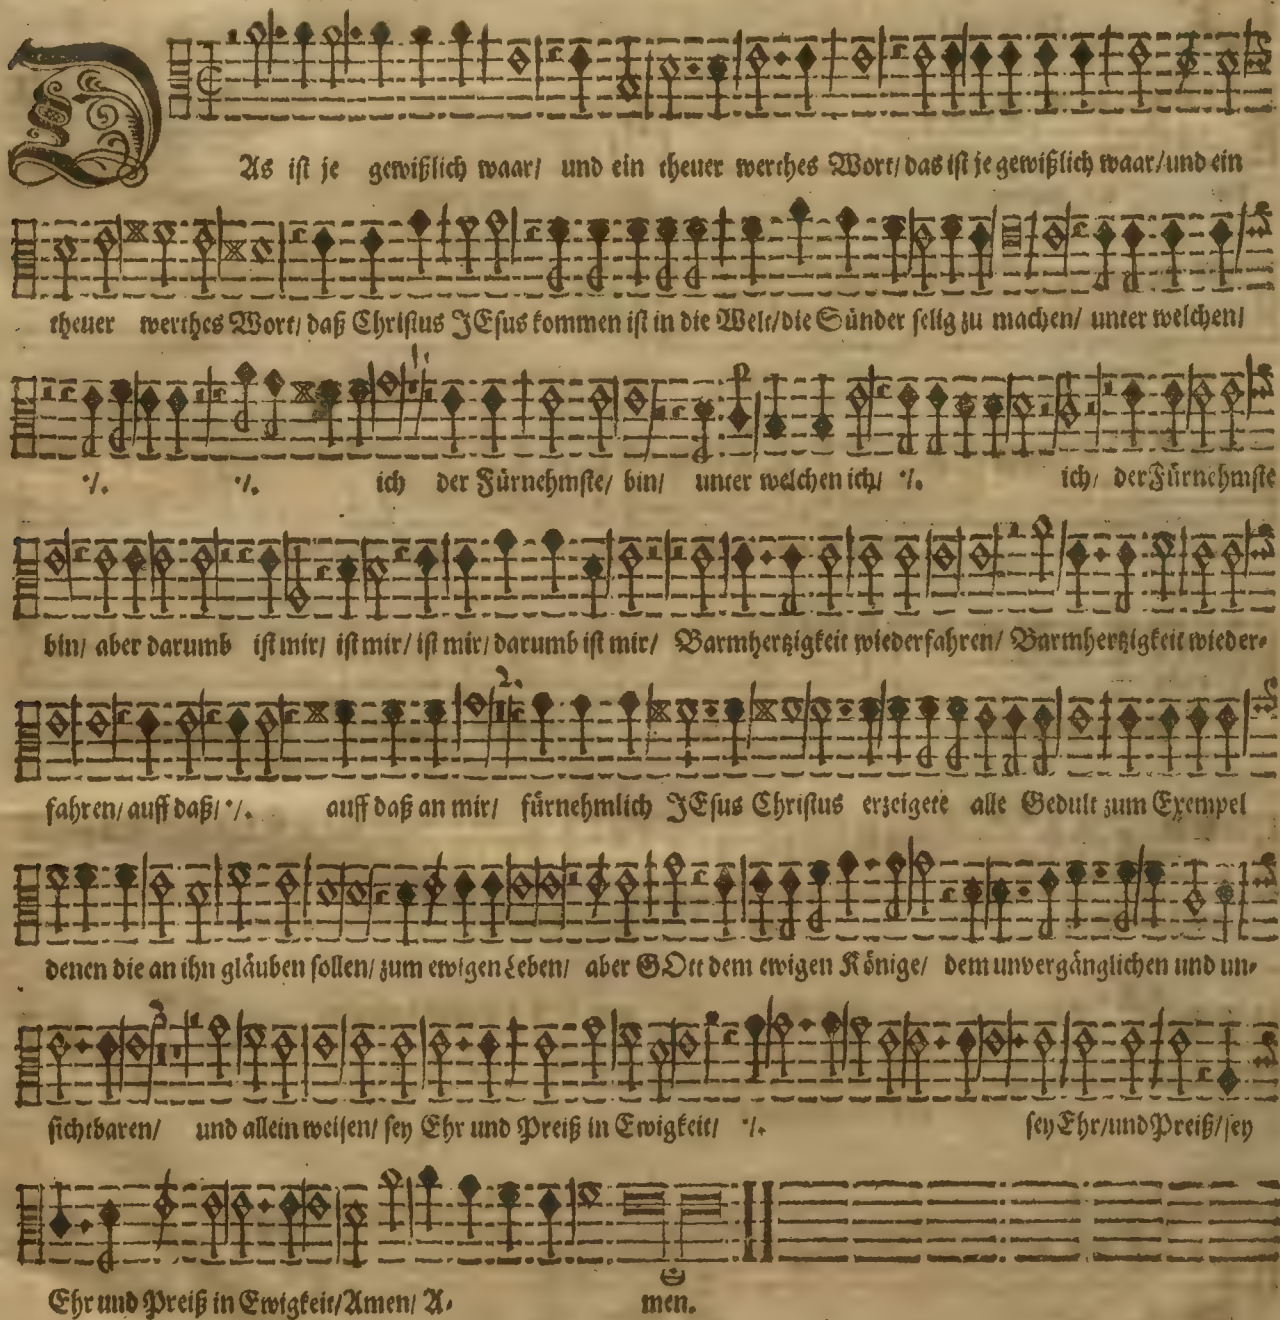 DAs ist je gewißlich waar/ und ein theuer werthes Wort/ das ist je gewißlich waar/ und ein
theuer werthes Wort/ daß Christus JEsus kommen ist in die Welt/ die Sünder selig zu machen/ unter welchen/
1.
·/. ·/. ich der Fürnehmste/ bin/ unter welchen ich/ ·/. ich/ der Fürnehmste
bin/ aber darumb ist mir/ ist mir/ ist mir/ darumb ist mir/ Barmhertzigkeit wiederfahren/ Barmhertzigkeit wieder-
2.
fahren/ auff daß/ ·/. auff daß an mir/ fürnehmlich JEsus Christus erzeigete alle Gedult zum Exempel
denen die an ihn gläuben sollen/ zum ewigen Leben/ aber GOtt dem ewigen Könige/ dem unvergänglichen und un-
3
sichtbaren/ und allein weisen/ sey Ehr und Preiß in Ewigkeit/ ·/. sey Ehr/ und Preiß/ sey
Ehr und Preiß in Ewigkeit/ Amen/ A- men.